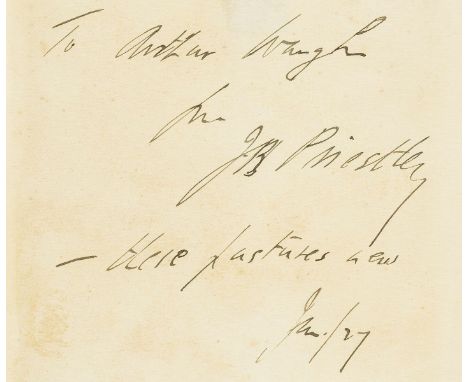 To Arthur Waugh
from
JB Priestley
— these pastures new
Jan./27